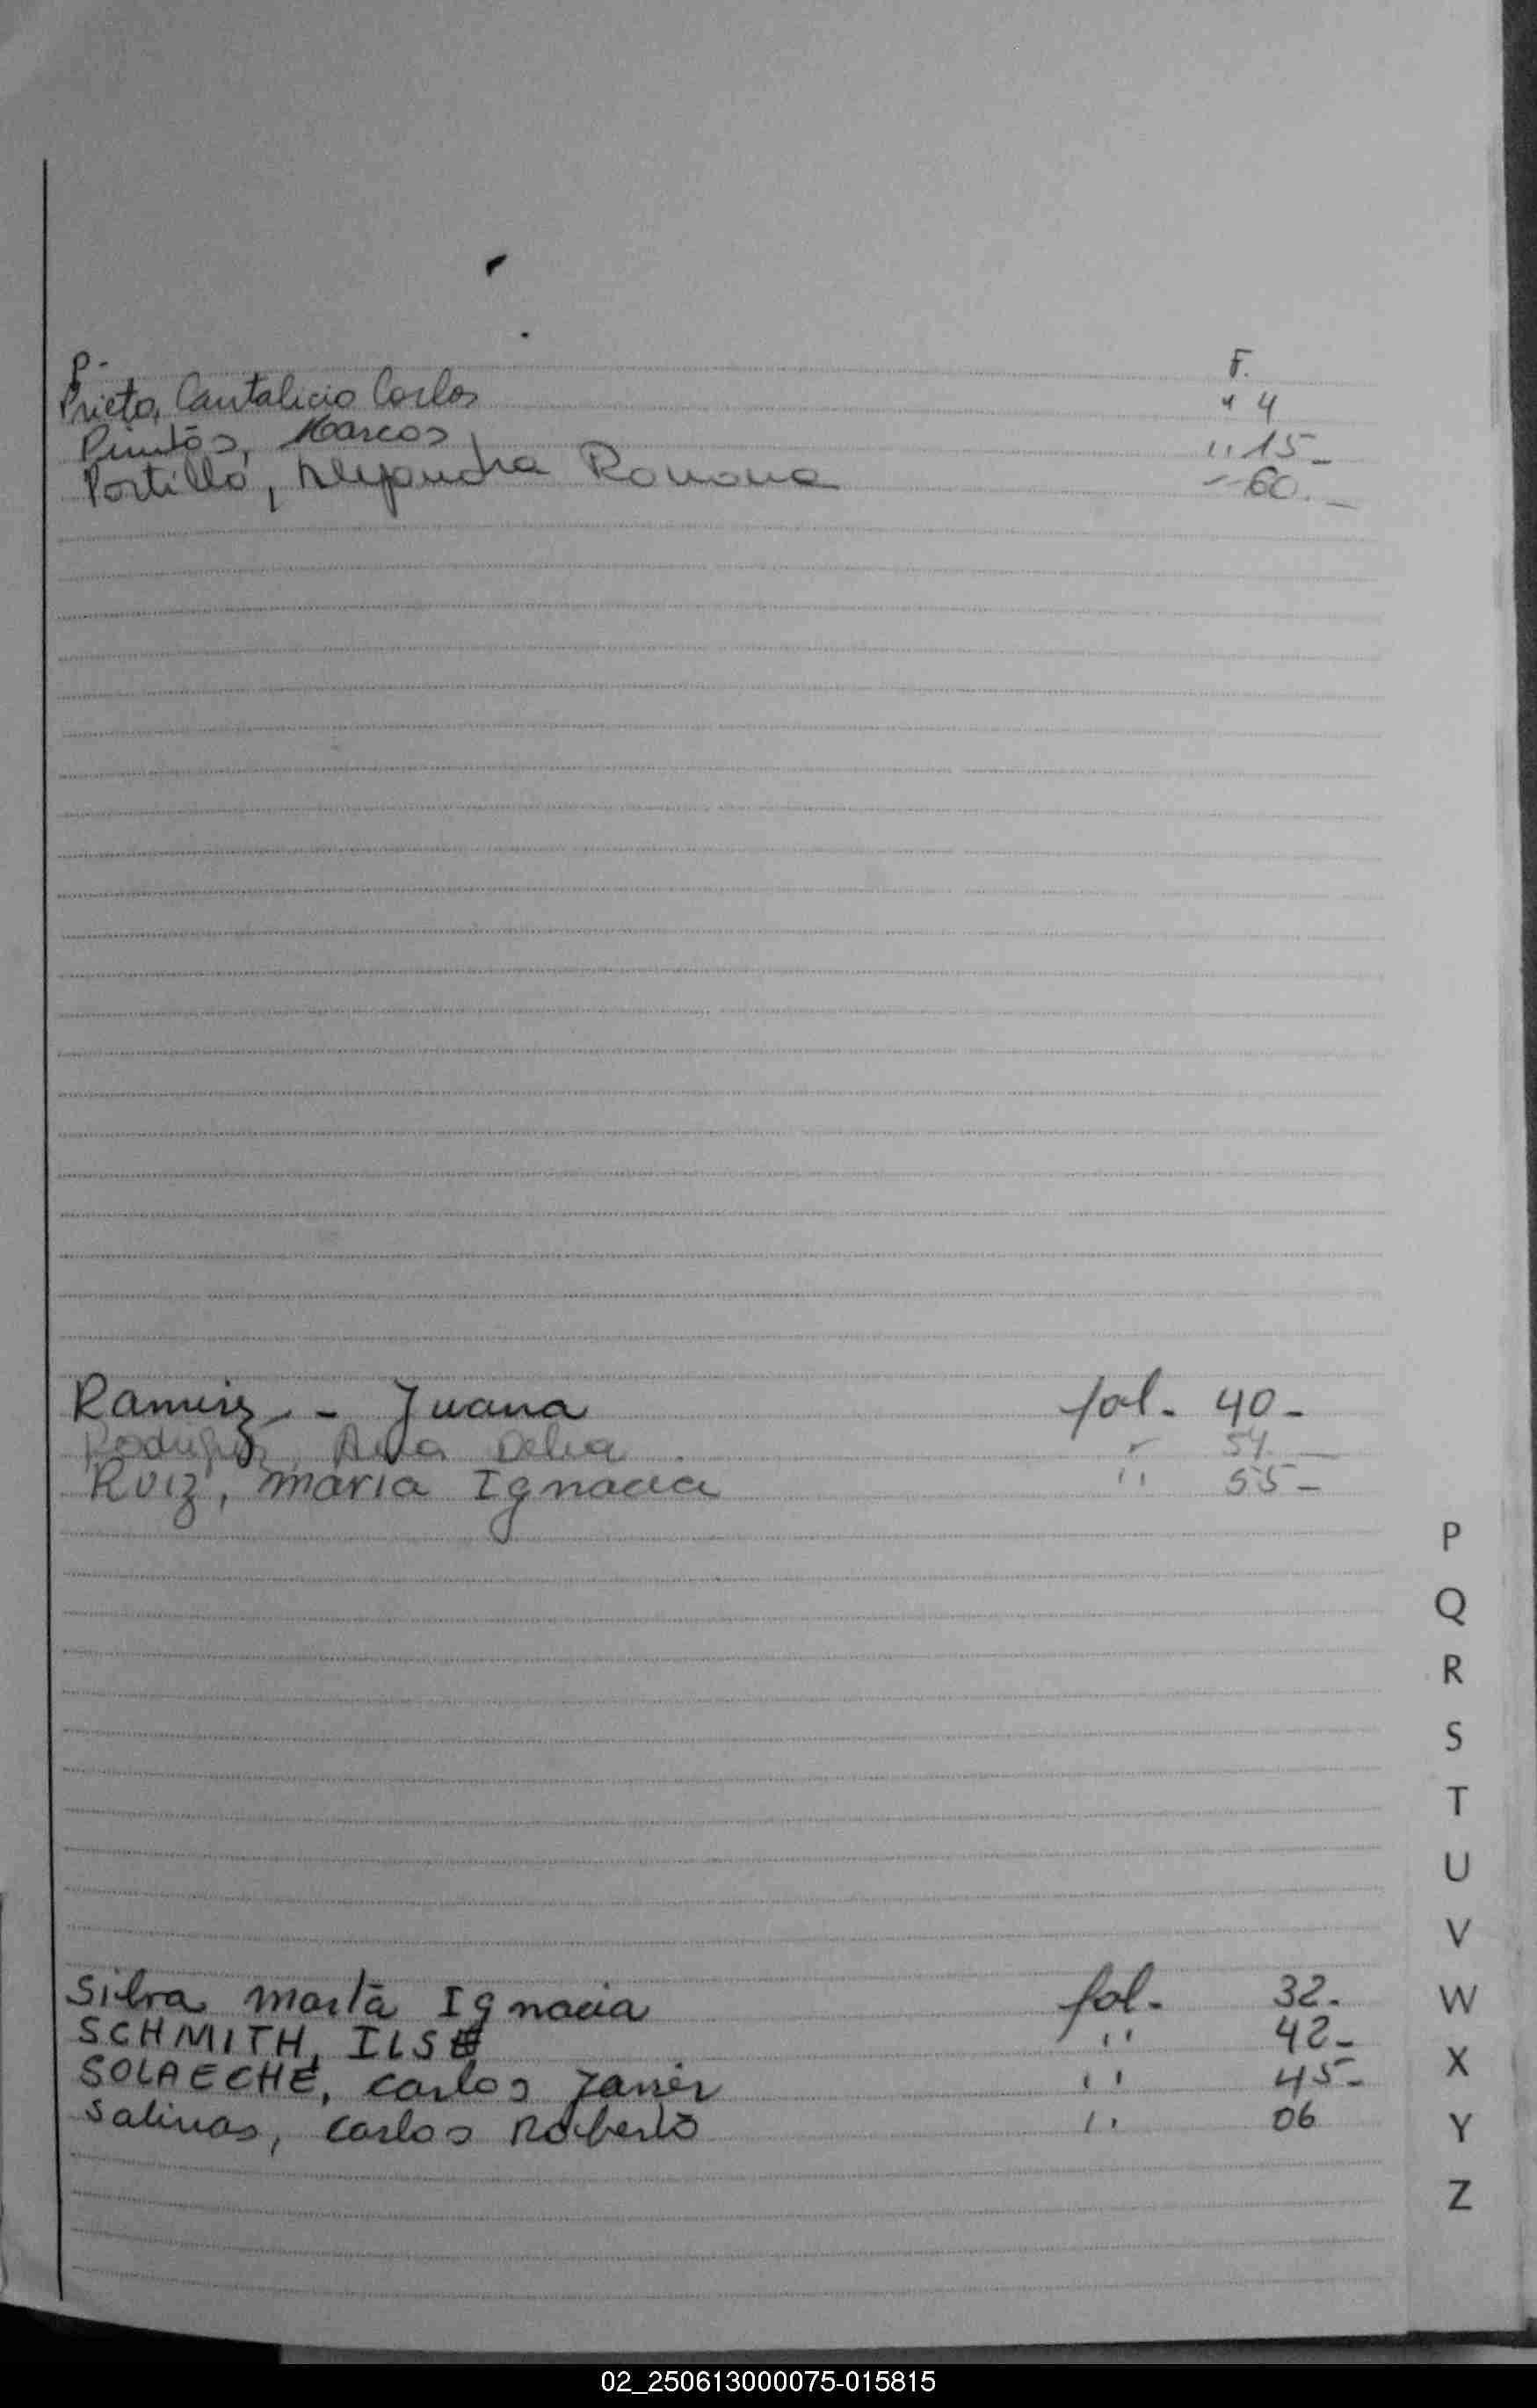 P- F.
Prieto, Cantalicio Carlos " 4
Pintos, Marcos " 15-
Portillo, Alejandra Ramona - 60.-
Ramirez - Juana fol. 40-
Rodriguez, Ana Delia 54. -
Ruiz, Maria Ignacia " 55-
P
Q
R
S
T
U
V
W
X
Y
Z
Silva Marta Ignacia fol. 32.
SCHMITH, ILSE " 42-
SOLAECHE, Carlos Javier " 45-
Salinas, Carlos Roberto " 06
02_250613000075-015815